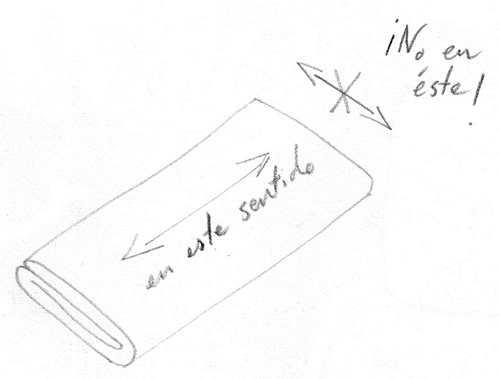 ¡No en
éste!
en este sentido